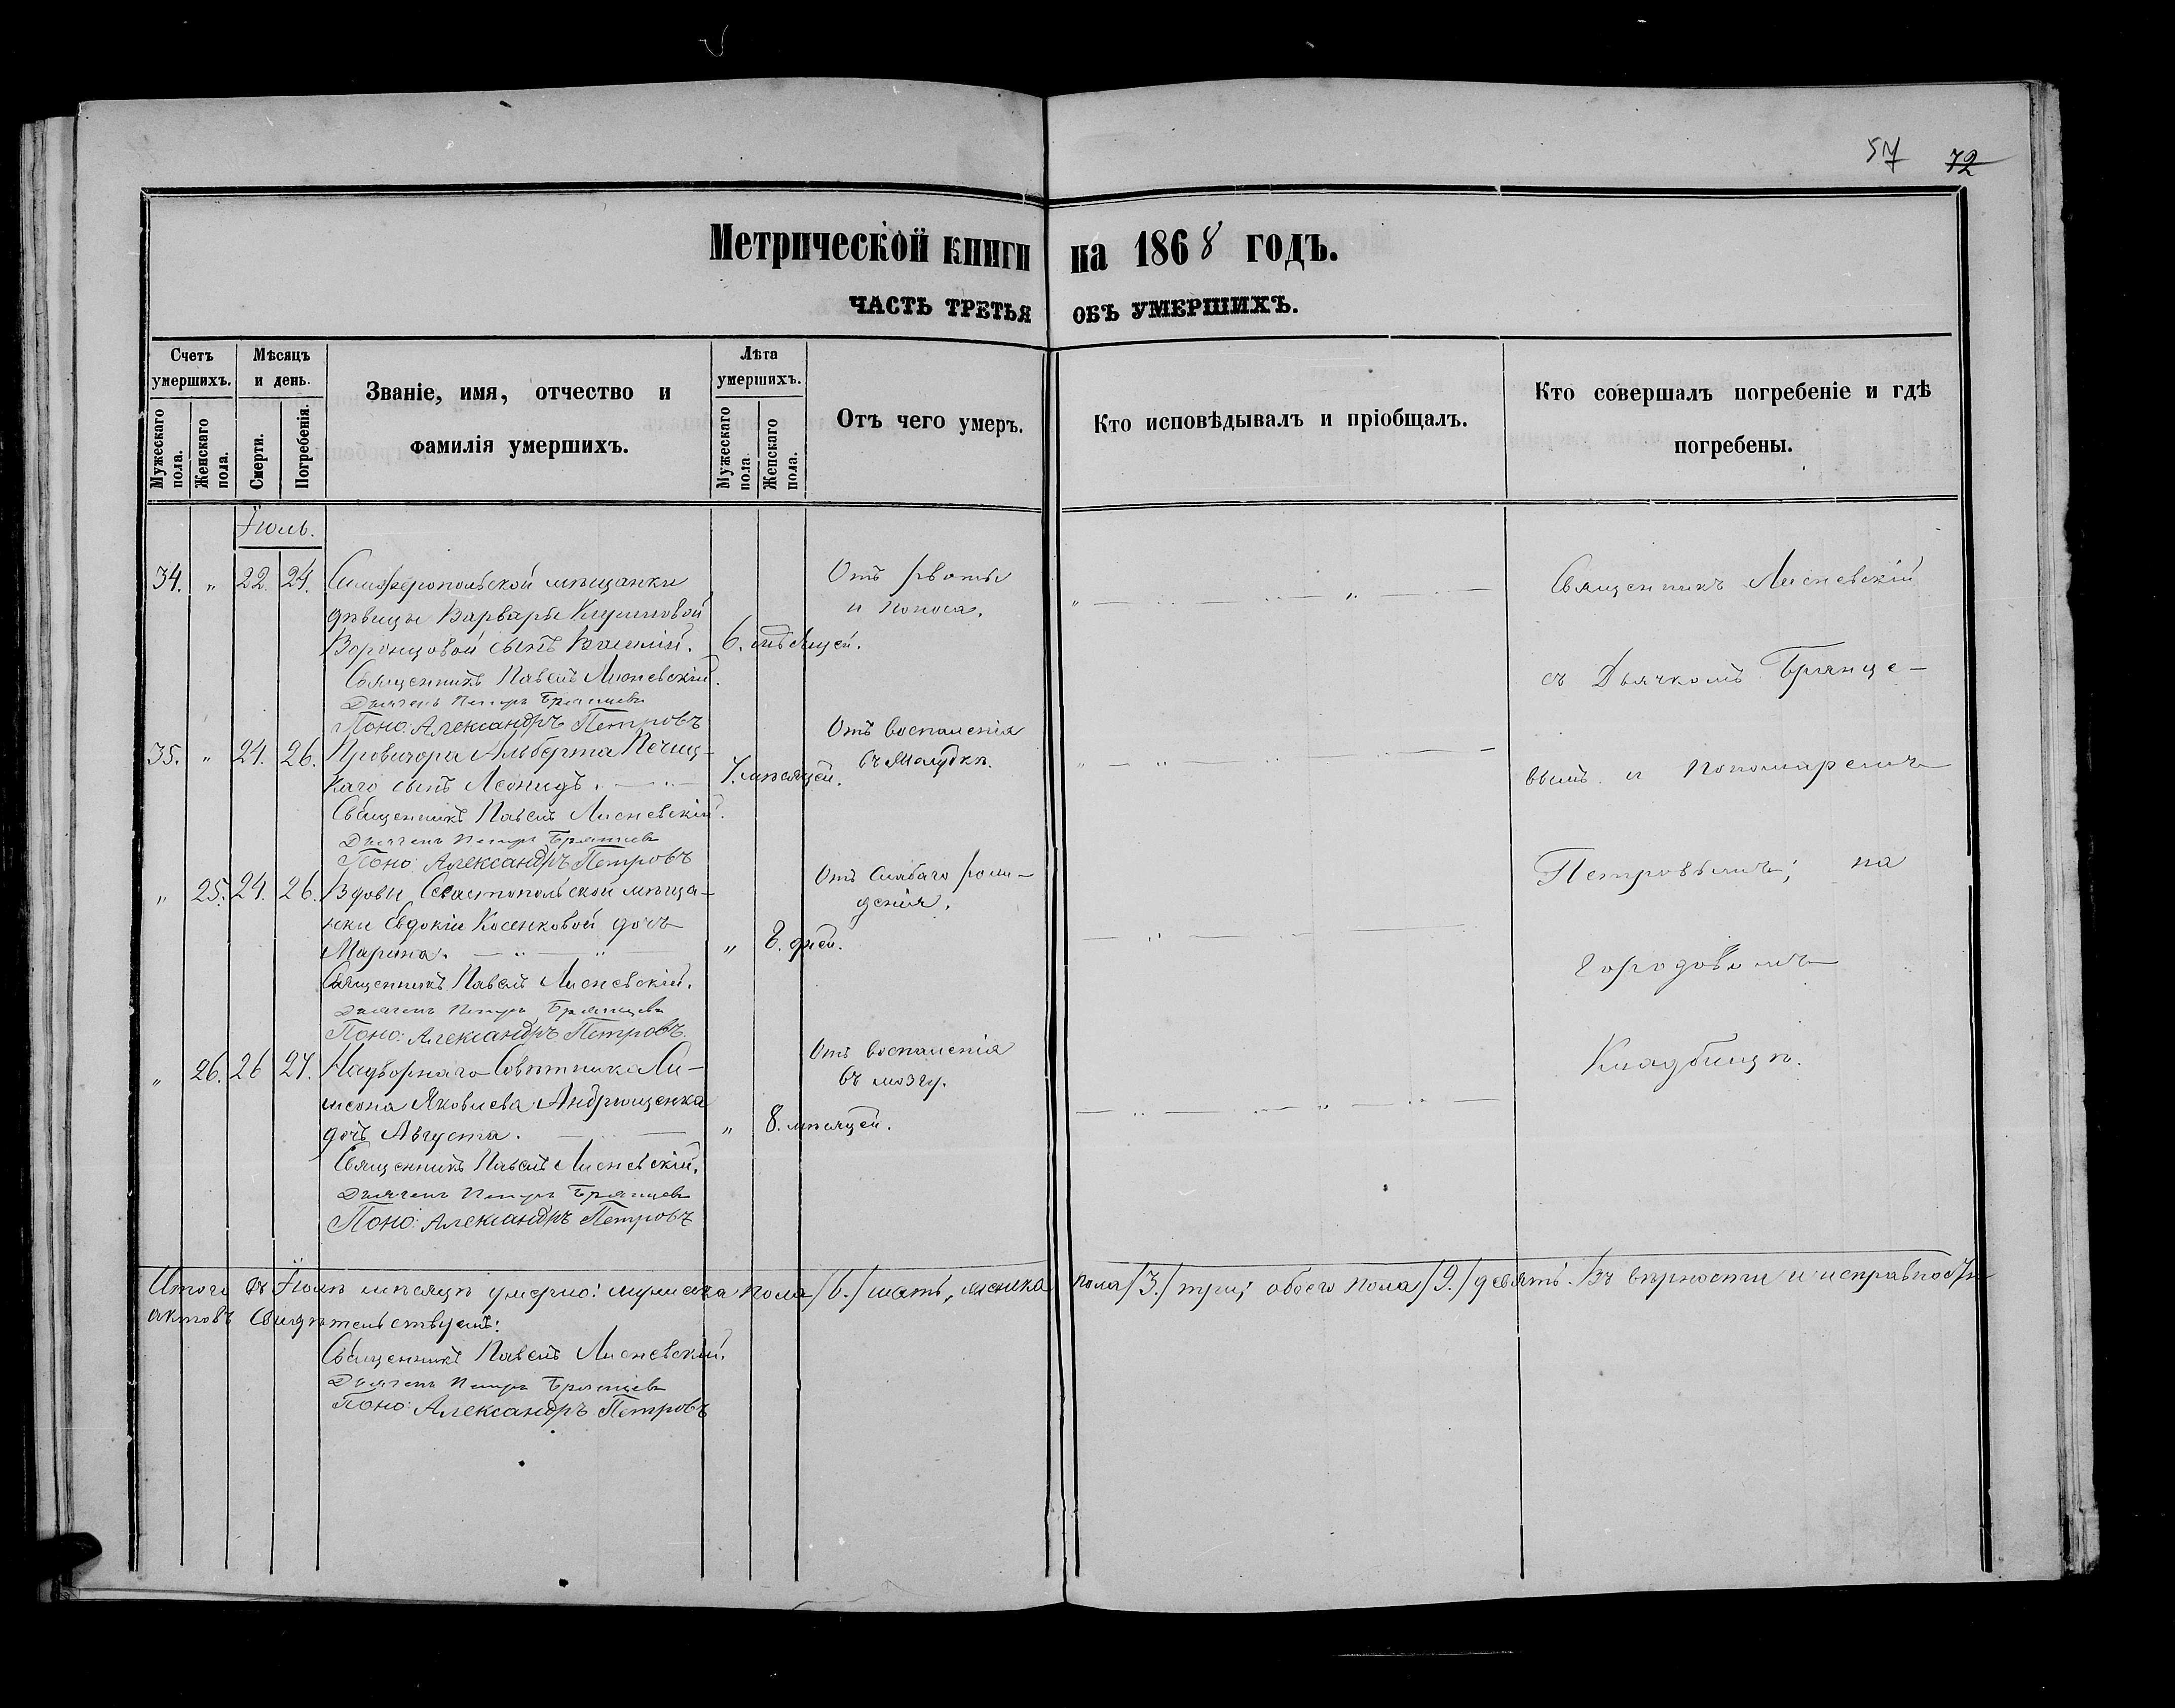 57 72
Метрической книги на 1868 годъ.
ЧАСТЬ ТРЕТЬЯ ОБЪ УМЕРШИХЪ.
Счетъ умершихъ.
Мужескаго пола.
Женскаго пола.
Мѣсяцъ и день.
Смерти.
Погребенія.
Званіе, имя, отчество и
фамилія умершихъ.
Лѣта умершихъ.
Мужескаго пола
Женскаго пола.
Отъ чего умеръ.
Кто исповѣдывалъ и пріобщалъ.
Кто совершалъ погребеніе и гдѣ
погребены.
Іюль.
34. " 22. 24. Симферопольской мѣщанки
дѣвицы Варвары
Воронцовой сынъ Василій. 6. мѣсяцей.
Отъ рвоты
и поноса.
Священникъ Павелъ Лисневскій.
Дьячекъ Петръ Брянцевъ
Поно: Александръ Петровъ
35. " 24. 26. Провизора Альберта Печиц-
каго сынъ Леонидъ. 7. мѣсяцей.
Отъ воспаленія
въ желудкѣ.
Священникъ Павелъ Лисневскій.
Дьячекъ Петръ Брянцевъ
Поно: Александръ Петровъ
" 25. 24. 26. Вдовы Севастопольской мѣща-
нки Евдокіи Косенковой дочь
Марина. " 8. дней.
Отъ слабаго рож-
денія.
Священникъ Павелъ Лисневскій.
Дьячекъ Петръ Брянцевъ
Поно: Александръ Петровъ
" 26. 26 27. Надворнаго Совѣтника Си-
меона Яковлева Андрющенка
дочь Августа. " 8. мѣсяцей.
Отъ воспаленія
въ мозгу.
Священникъ Павелъ Лисневскій.
Дьячекъ Петръ Брянцевъ
Поно: Александръ Петровъ
Священникъ Лисневскій
съ Дьячкомъ Брянце-
вымъ и Пономаремъ
Петровымъ; на
городовомъ
Кладбищѣ.
Итого въ Іюлѣ мѣсяцѣ умерло: мужеска пола /6./ шесть, женска пола /3./ три; обоего пола /9./ девять. Въ вѣрности и исправности
актовъ Свидѣтельствуемъ:
Священникъ Павелъ Лисневскій.
Дьячекъ Петръ Брянцевъ
Поно: Александръ Петровъ